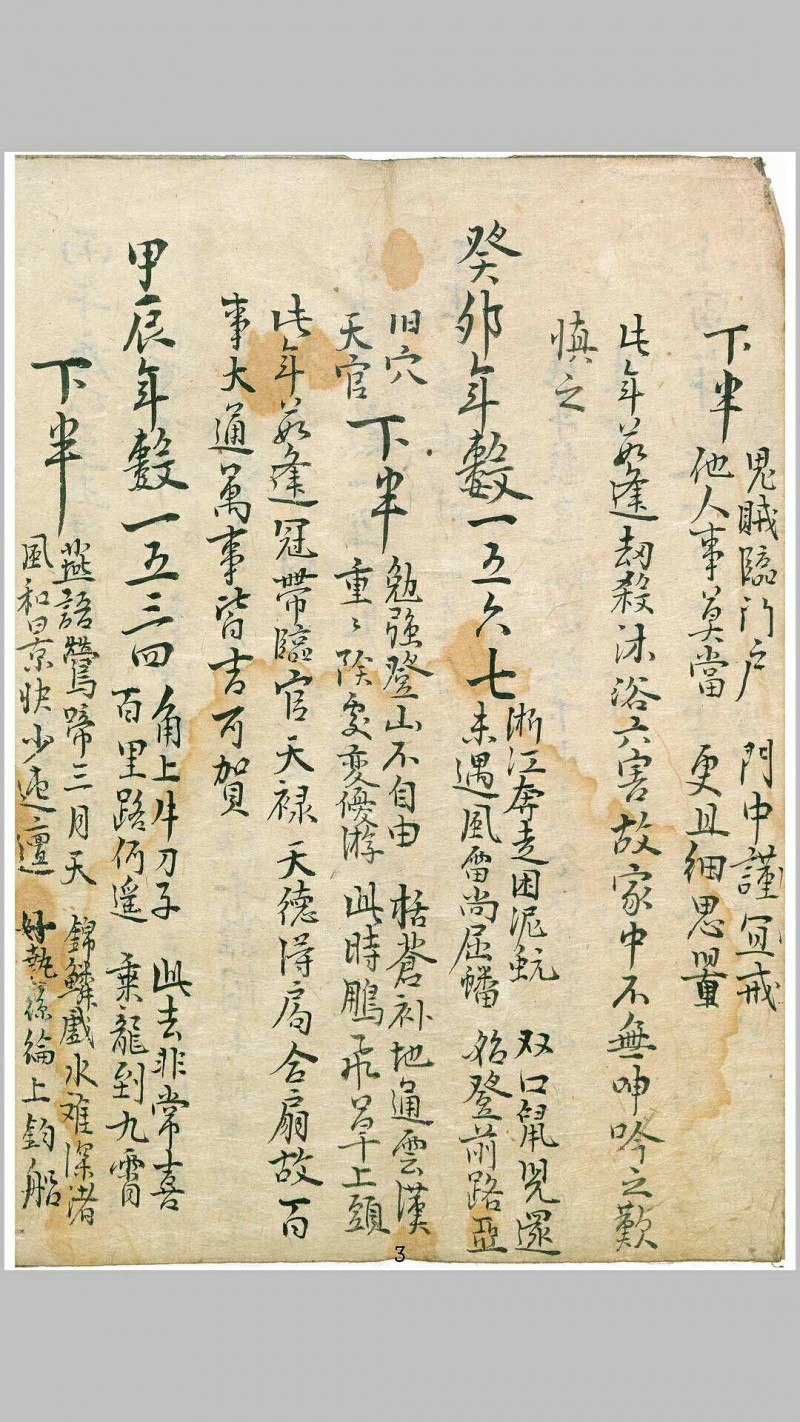 下半
鬼賊臨門戶 門中謹宜戒
他人事莫當 更且細思量
此年若逢劫殺沐浴六害故家中不無呻吟之歎
慎之
癸卯年數一五六七
浙江奔走困泥 双口鼠兒還
未遇風雷尚屈蟠 名登前路亞
旧穴
天官
下半
勉强登山不自由 梧蒼补地通雲漢
重〻险處变優游 此時鵬飛早上頭
此年若逢冠帶臨官天禄天德得局合扇故百
事大通萬事皆吉可賀
甲辰年數一五三四
角上牛刀子 此去非常喜
百里路仍遥 乘龍到九霄
下半
燕語鶯啼三月天 錦鱗戲水难深渚
風和日景快少迍邅 好執絲綸上釣船
3